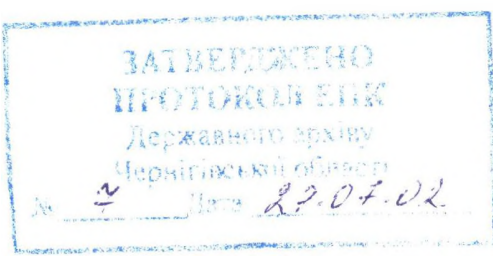 ЗАТВЕРДЖЕНО
ПРОТОКОЛ ЕПК
Державного архіву
Чернігівської області
№ 7 Дата 27.07.02